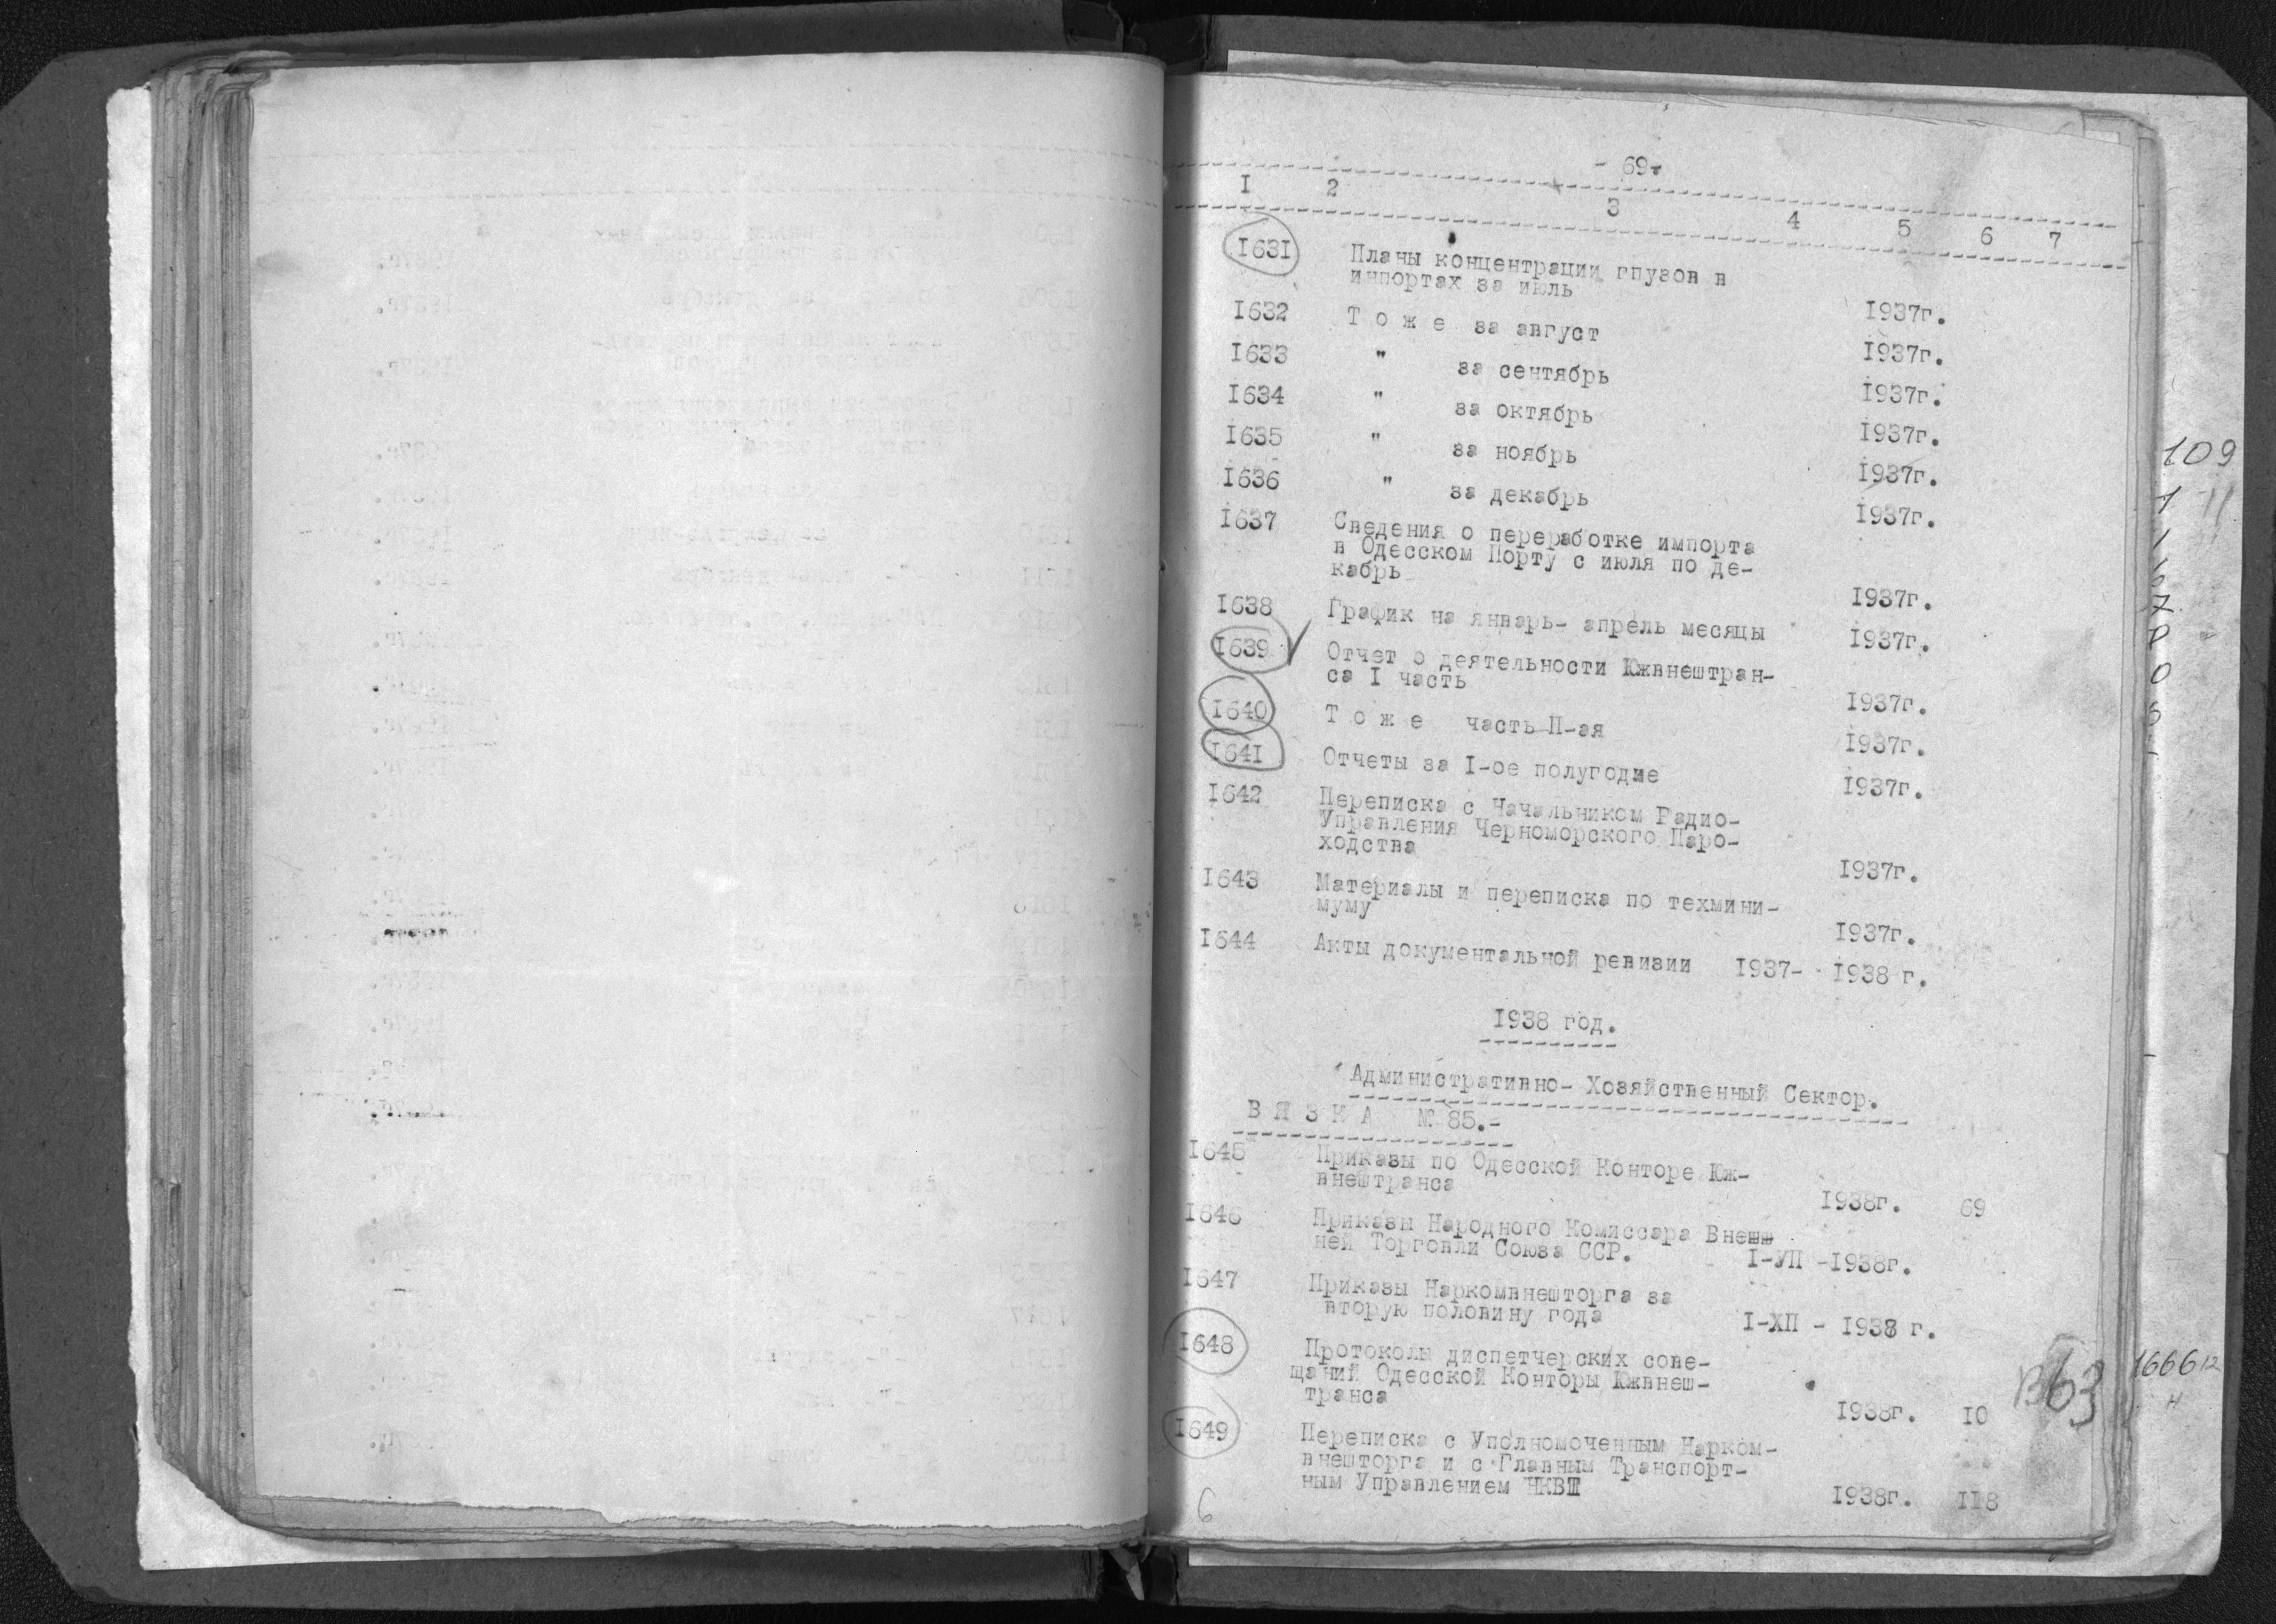 - 69-
I 2 3 4 5 6 7
I631 Планы концентрации гпузов в
инпортах за июль 1937г.
I632 Т о ж е за август 1937г.
I633 " за сентябрь 1937г.
I634 " за октябрь 1937г.
I635 " за ноябрь 1937г.
I636 " за декабрь 1937г.
I637 Сведения о переработке импорта
в Одесском Порту с июля по де-
кабрь 1937г.
I638 График на январь- апрель месяцы 1937г.
I639 Отчет о деятельности Южвнештран-
са I часть 1937г.
I640 Т о ж е часть П-ая 1937г.
I641 Отчеты за I-ое полугодие 1937г.
I642 Переписка с Начальником Радио-
Управления Черноморского Паро-
ходства 1937г.
I643 Материалы и переписка по техмини-
муму 1937г.
I644 Акты документальной ревизии 1937- 1938 г.
1938 год.
Административно- Хозяйственный Сектор.
В Я З К А № 85.-
I645 Приказы по Одесской Конторе Юж-
внештранса 1938г. 69
I646 Приказы Народного Комиссара Внешн
ней Торговли Союза ССР. I-УП -1938г.
I647 Приказы Наркомвнешторга за
вторую половину года I-ХП - 1938 г.
I648 Протоколы диспетчерских сове-
щаний Одесской Конторы Южвнеш-
транса 1938г. 10
I649 Переписка с Уполномоченным Нарком-
внешторга и с Главным Транспорт-
ным Управлением НКВТ 1938г. 118
6
109
63
1666